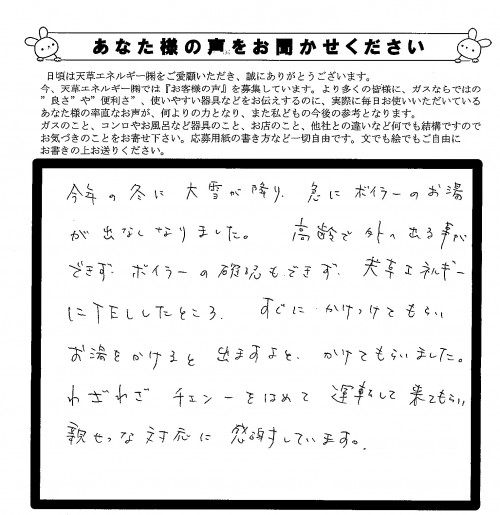 あなた様の声をお聞かせください
日頃は天草エネルギー㈱をご愛顧いただき、誠にありがとうございます。
今、天草エネルギー㈱では『お客様の声』を募集しています。より多くの皆様に、ガスならではの
”良さ”や”便利さ”、使いやすい器具などをお伝えするのに、実際に毎日お使いいただいている
あなた様の率直なお声が、何よりの力となり、また私どもの今後の参考となります。
ガスのこと、コンロやお風呂など器具のこと、お店のこと、他社との違いなど何でも結構ですので
お気づきのことをお寄せ下さい。応募用紙の書き方など一切自由です。文でも絵でもご自由に
お書きの上お送りください。
今年の冬に 大雪が降り、急にボイラーのお湯
が出なくなりました。 高齢で外へ出る事が
できず ボイラーの確認もできず、天草エネルギー
にTELしたところ、 すぐに かけつけてもらい
お湯をかけると 出ますよと、かけてもらいました。
わざわざ チェーンをはめて 運転して来てもらい
親せつな対応に 感謝しています。